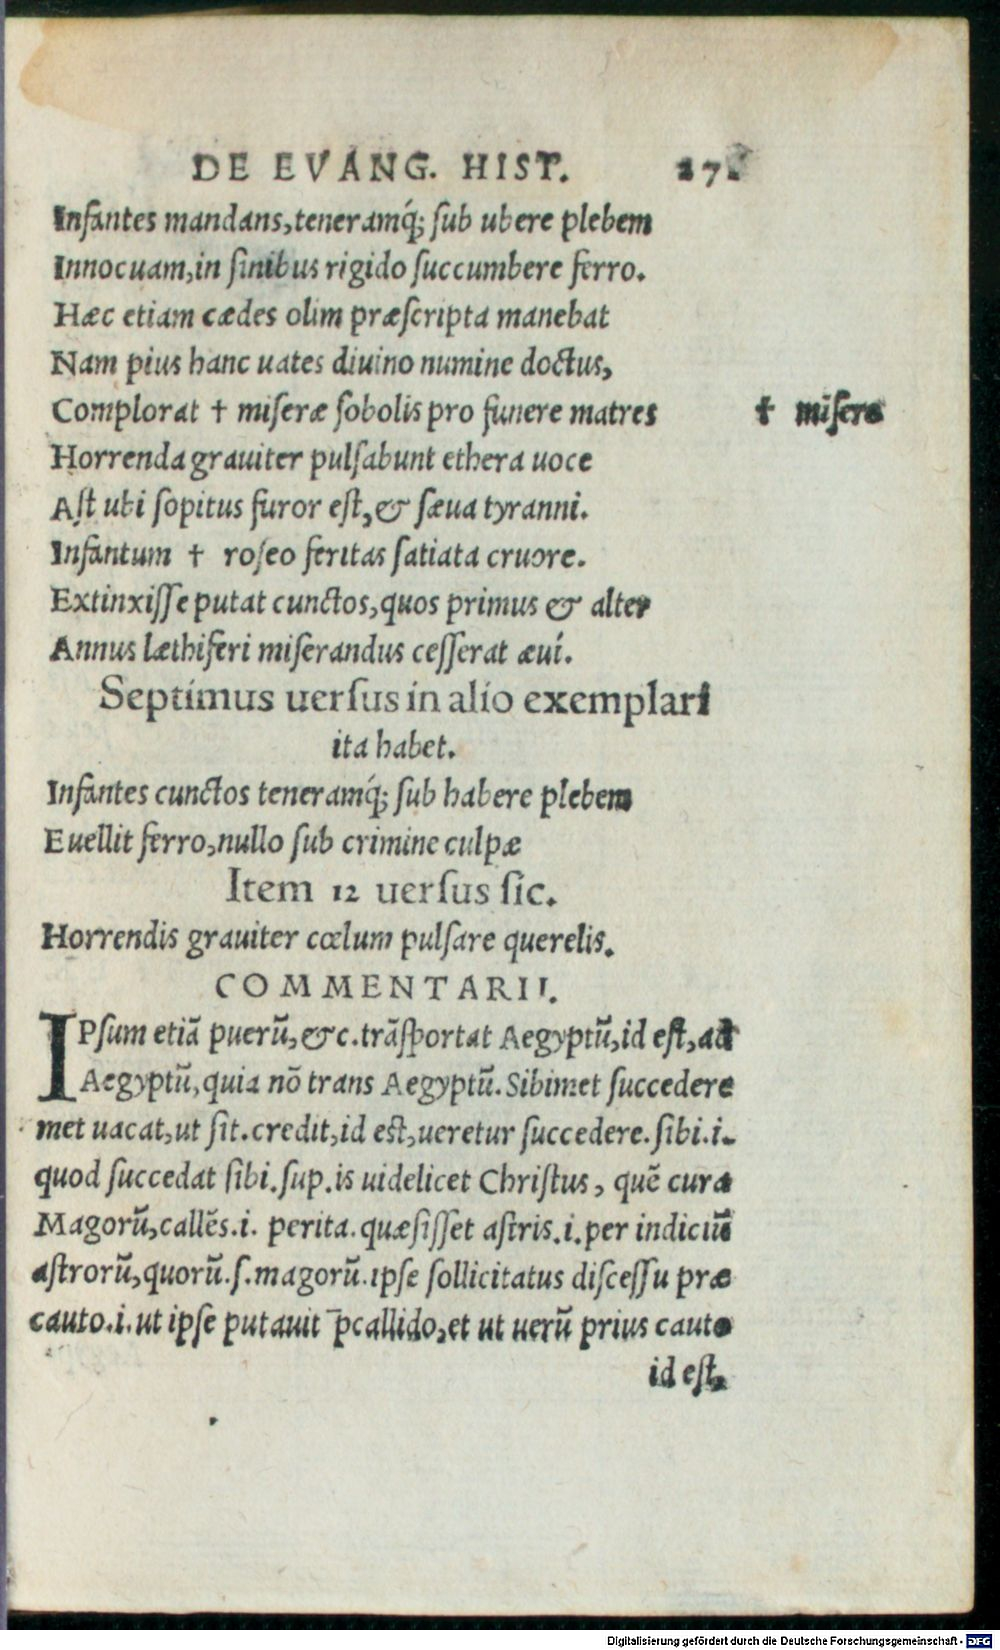 DE EVANG. HIST. 27.
Infantes mandans, teneramq́; ſub ubere plebem
Innocuam, in ſinibus rigido ſuccumbere ferro.
Hæc etiam cædes olim præſcripta manebat
Nam pius hanc uates diuino numine doctus,
Complorat † miſeræ ſobolis pro funere matres † miſere
Horrenda grauiter pulſabunt ethera uoce
Aſt ubi ſopitus furor eſt, & ſæua tyranni.
Infantum † roſeo feritas ſatiata cruore.
Extinxiſſe putat cunctos, quos primus & alter
Annus læthiferi miſerandus ceſſerat æui.
Septimus uerſus in alio exemplari
ita habet.
Infantes cunctos teneramq́; ſub habere plebem
Euellit ferro, nullo ſub crimine culpæ
Item 12 uerſus ſic.
Horrendis grauiter cœlum pulſare querelis.
COMMENTARII.
IPſum etiã puerũ, &c. trãſportat Aegyptũ, id eſt, ad
Aegyptũ, quia nõ trans Aegyptũ. Sibimet ſuccedere
met uacat, ut ſit. credit, id eſt, ueretur ſuccedere. ſibi. i.
quod ſuccedat ſibi. ſup. is uidelicet Chriſtus, quẽ cura
Magorũ, callẽs. i. perita. quæſiſſet aſtris. i. per indiciũ
aſtrorũ, quorũ. ſ. magorũ. ipſe ſollicitatus diſceſſu præ
cauto. i. ut ipſe putauit p̄callido, et ut uerũ prius cauto
id eſt,
Digitalisierung gefördert durch die Deutsche Forschungsgemeinschaft - DFG